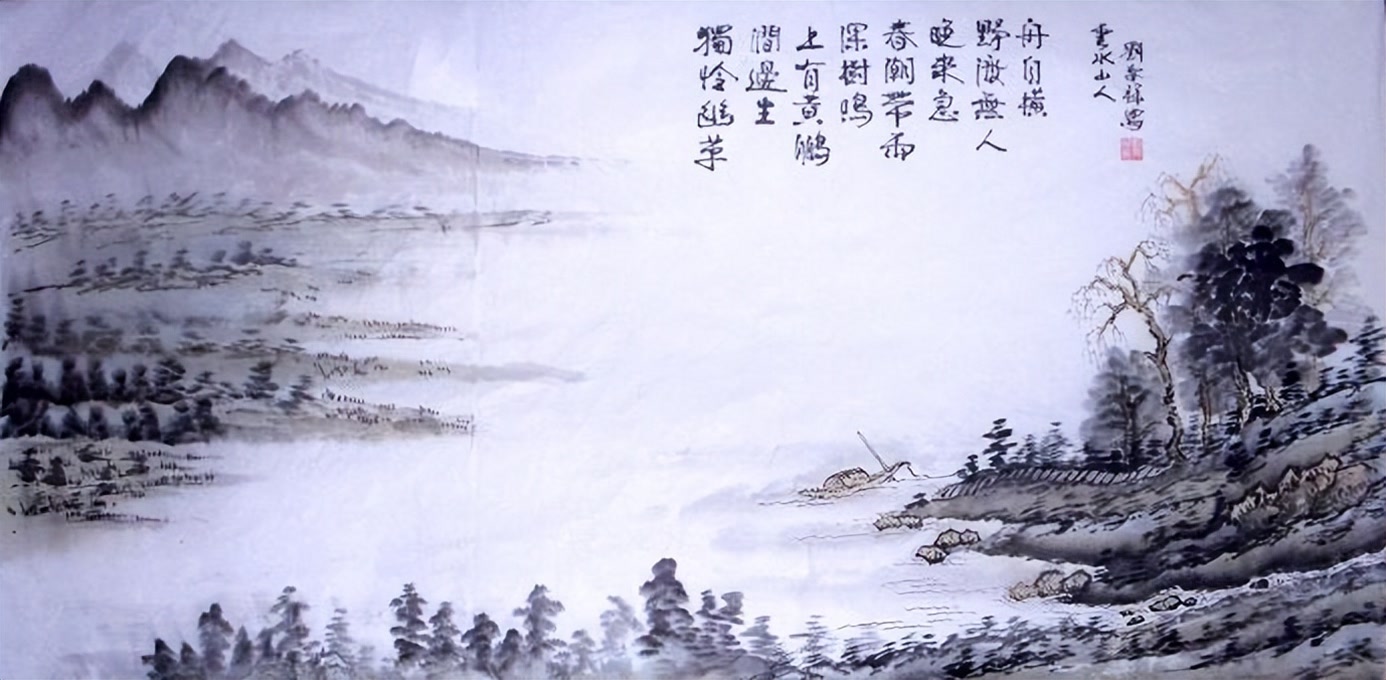 獨怜幽草
澗邊生
上有黃鸝
深樹鳴
春潮帶雨
晚來急
野渡無人
舟自橫
水山人
劉 寫